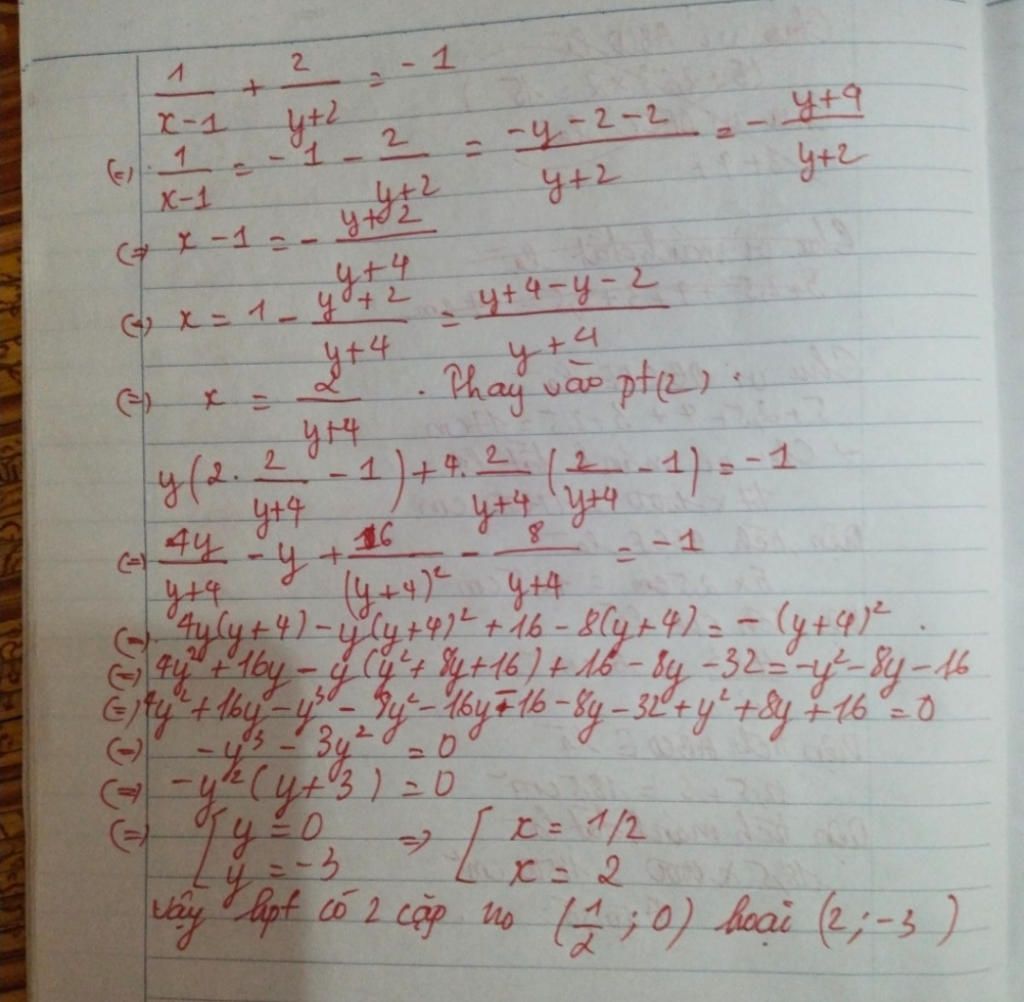 1/(x-1) + 2/(y+2) = -1
(=) 1/(x-1) = -1 - 2/(y+2) = (-y-2-2)/(y+2) = - (y+4)/(y+2)
(=) x-1 = - (y+2)/(y+4)
(=) x = 1 - (y+2)/(y+4) = (y+4-y-2)/(y+4)
(=) x = 2/(y+4) . Thay vào pt(2) .
y(2. 2/(y+4) - 1) + 4. 2/(y+4) (2/(y+4) - 1) = -1
(=) 4y/(y+4) - y + 16/(y+4)² - 8/(y+4) = -1
(=) 4y(y+4) - y(y+4)² + 16 - 8(y+4) = - (y+4)² .
(=) 4y² + 16y - y(y² + 8y + 16) + 16 - 8y - 32 = -y² - 8y - 16
(=) 4y² + 16y - y³ - 8y² - 16y + 16 - 8y - 32 + y² + 8y + 16 = 0
(=) -y³ - 3y² = 0
(=) -y²(y+3) = 0
(=) [ y = 0 => [ x = 1/2
y = -3 x = 2
Vậy hpt có 2 cặp no (1/2 ; 0) hoặc (2; -3)